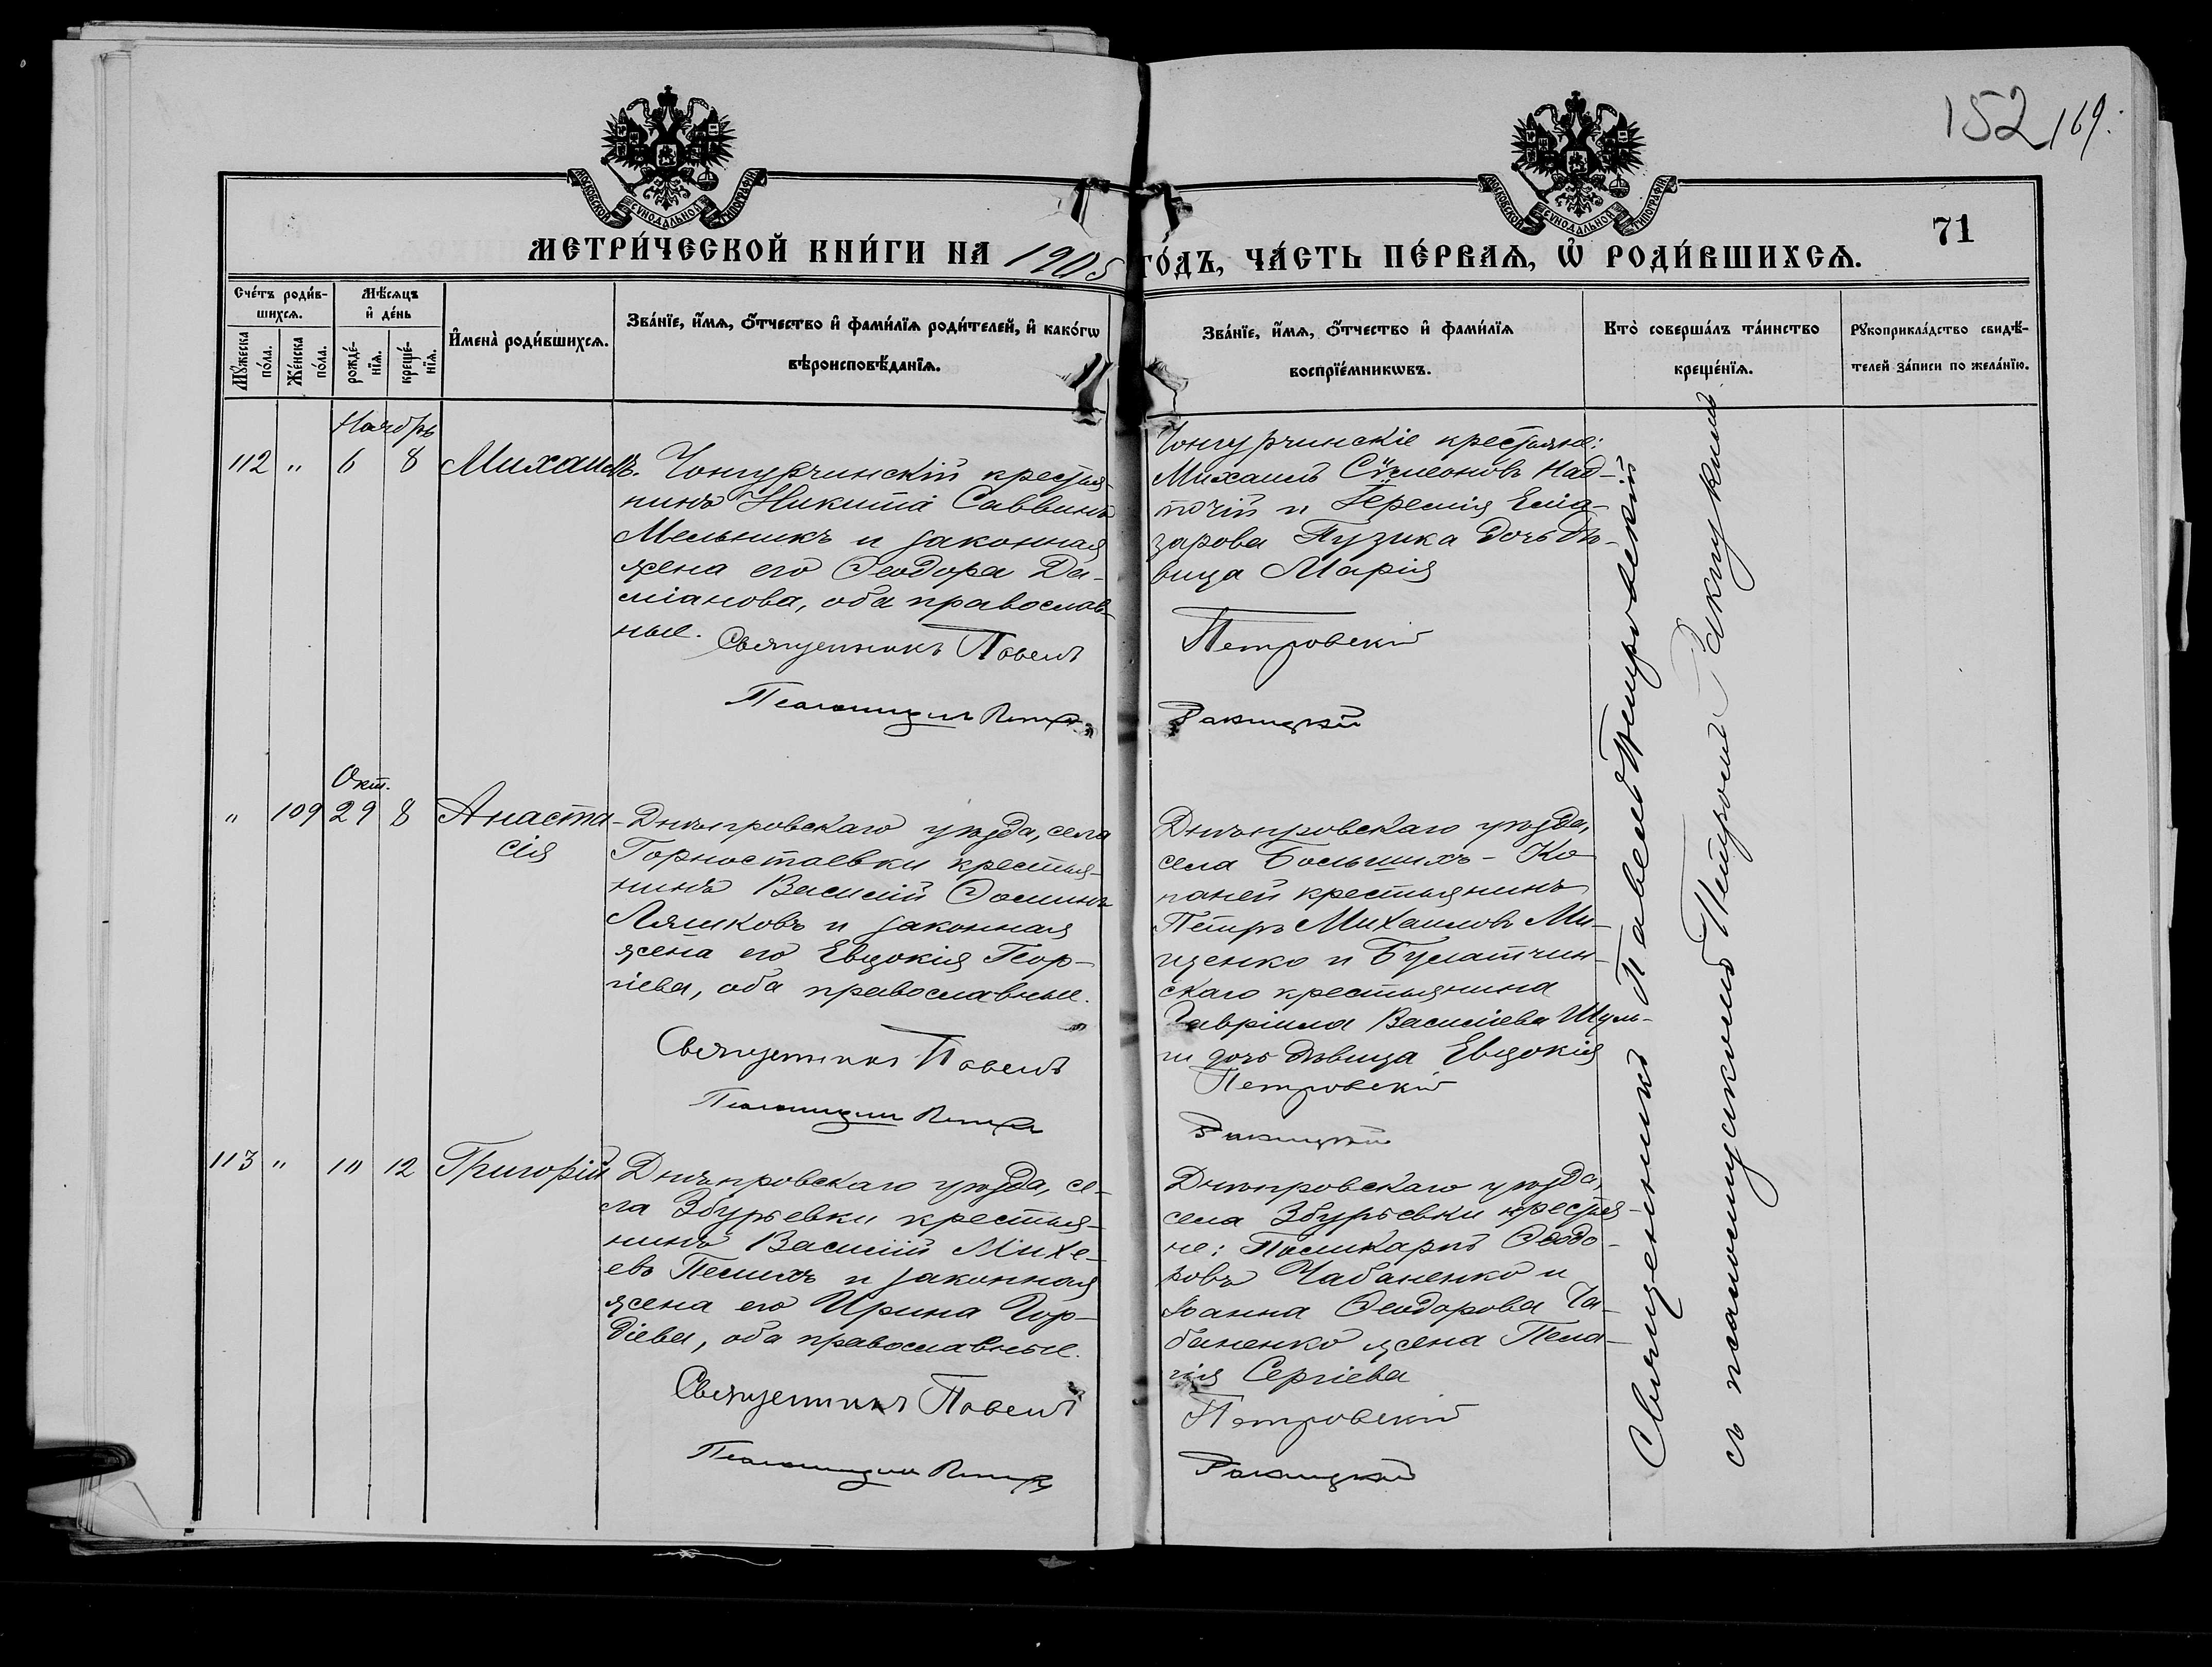 152 169.
МОСКОВСКОЙ СѴНОДАЛЬНОЙ ТИПОГРАФІИ
МОСКОВСКОЙ СѴНОДАЛЬНОЙ ТИПОГРАФІИ
71
МЕТРИ́ЧЕСКОЙ КНИ́ГИ НА 1905 ГО́ДЪ, ЧА́СТЬ ПЕ́РВАѦ, Ѡ҆ РОДИ́ВШИХСѦ.
Сче́тъ роди́в-
шихсѧ.
Мꙋ́жеска по́ла.
Же́нска по́ла.
Мѣ́сѧцъ
и҆ де́нь
рожде́-
нїѧ.
креще́-
нїѧ.
И҆мена̀ роди́вшихсѧ.
Зва́нїе, и҆́мѧ, ѻ҆́тчество и҆ фами́лїѧ роди́телей, и҆ како́гѡ
вѣроисповѣ́данїѧ.
Зва́нїе, и҆́мѧ, ѻ҆́тчество и҆ фами́лїѧ
воспрїе́мникѡвъ.
Кто̀ соверша́лъ та́инство
креще́нїѧ.
Рꙋкоприкла́дство свидѣ́-
телей за́писи по жела́нїю.
Ноябрь
112 " 6 8 Михаилъ.
Чонгурчинскій крестья-
нинъ Никита Саввинъ
Мельникъ и законная
жена его Ѳеодора Да-
міанова, оба православ-
ные.
Священникъ Павелъ
Псаломщикъ Петръ
Чонгурчинскіе крестьяне:
Михаилъ Сѵмеоновъ Над-
точій и Іеремія Елиа-
зарова Пузика дочь дѣ-
вица Марія
Петровскій
Ракицкій
Окт.
" 109 29 8 Анаста-
сія
Днѣпровскаго уѣзда, села
Горностаевки крестья-
нинъ Василій Ѳоминъ
Ляшковъ и законная
жена его Евдокія Геор-
гіева, оба православные.
Священникъ Павелъ
Псаломщикъ Петръ
Днѣпровскаго уѣзда,
села Большихъ-Ко-
паней крестьянинъ
Петръ Михаиловъ Ми-
щенко и Булатчин-
скаго крестьянина
Гавріила Василіева Шуль-
ги дочь дѣвица Евдокія
Петровскій
Ракицкій
113 " 10 12 Григорій
Днѣпровскаго уѣзда, се-
ла Збурьевки крестья-
нинъ Василій Михе-
евъ Пелихъ и законная
жена его Ирина Гор-
діева, оба православные.
Священникъ Павелъ
Псаломщикъ Петръ
Днѣпровскаго уѣзда,
села Збурьевки крестья-
не: Поликарпъ Ѳеодо-
ровъ Чабаненко и
Іоанна Ѳеодорова Ча-
баненко жена Пела-
гія Сергіева
Петровскій
Ракицкій
Священникъ Павелъ Петровскій
съ псаломщикомъ Петромъ Ракицкимъ